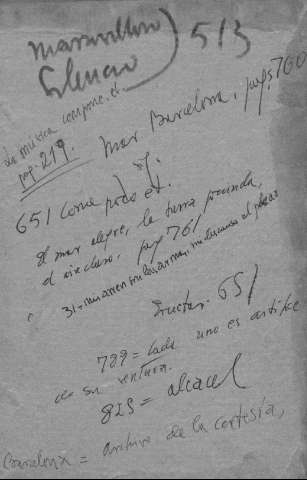 maravilloso
silencio } 513
La música compone. et
pag. 219. Mar Barcelona, pags. 760
y.
651 Come podo et.
El mar alegre, la tierra jocunda,
el aire claro, pag 761
31 =
Fructas. 651
789 = Cada uno es artífice
de su ventura.
825 = alcacel
Barcelona = archivo de la cortesía,